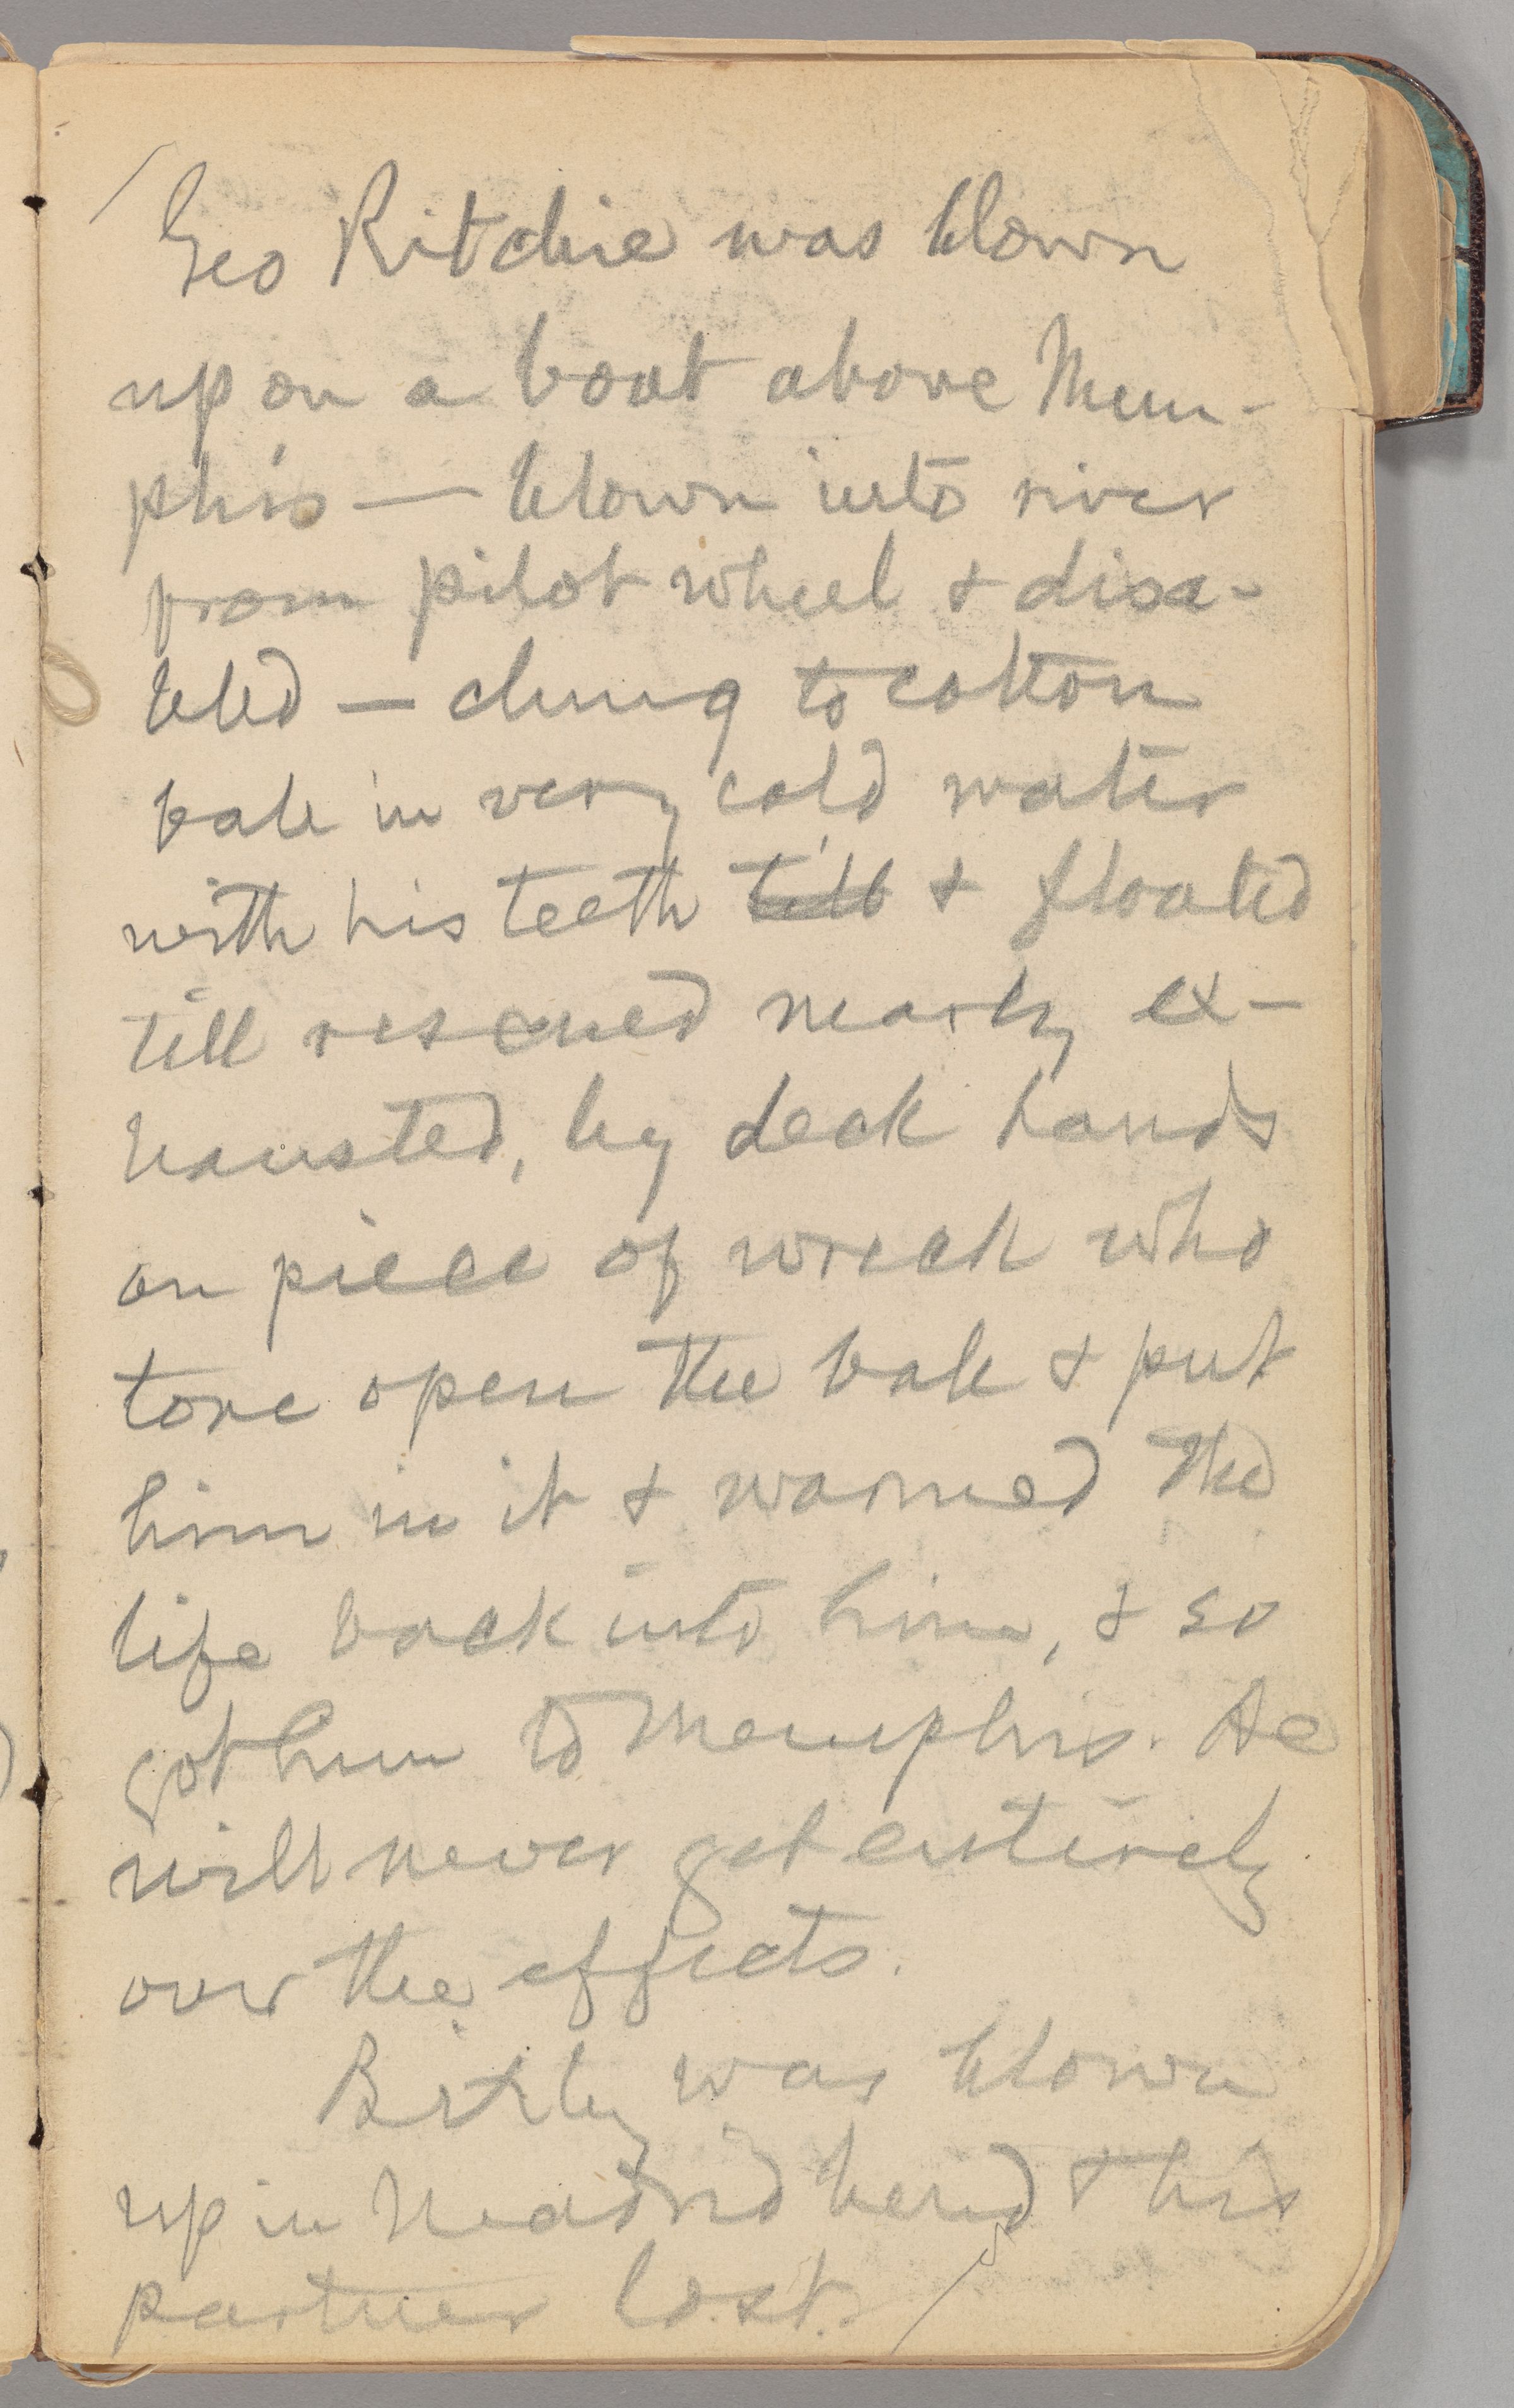 Geo Ritchie was blown
up on a boat above Mem-
phis — blown into river
from pilot wheel & disa-
bled — clung to cotton
bale in very cold water
with his teeth till & floated
till rescued nearly ex-
hausted, by deck hands
on piece of wreck who
tore open the bale & put
him in it & warmed the
life back into him, & so
got him to Memphis. He
will never get entirely
over the effects.
Bixby was blown
up in Madrid bend & his
partner lost.